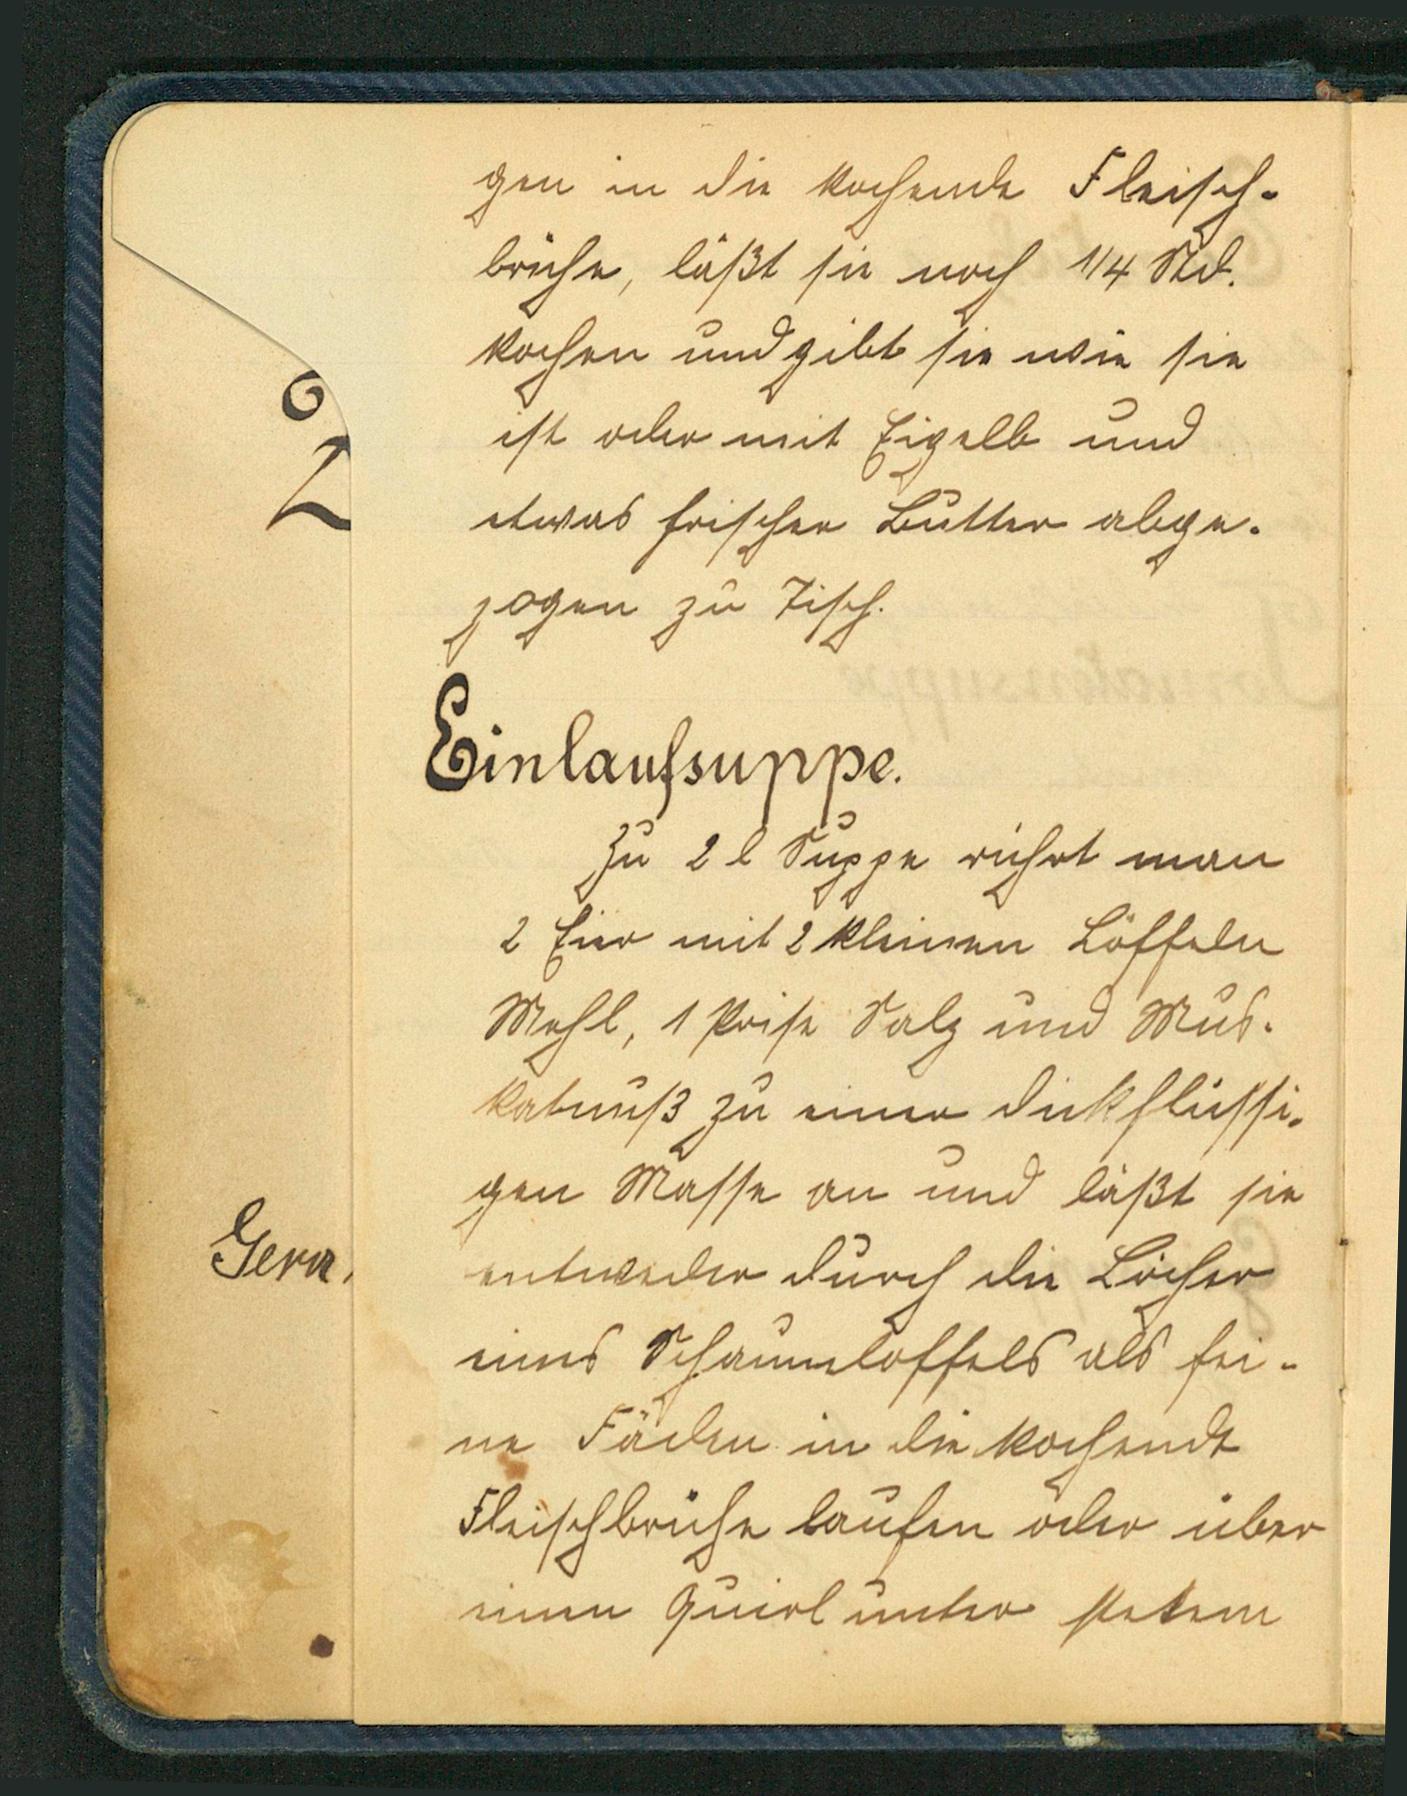 gen in die kochende Fleisch-
brühe, läßt sie noch 1/4 Std.
kochen und gibt sie wie sie
ist oder mit Eigelb und
etwas frischer Butter abge-
zogen zu Tisch.
Einlaufsuppe.
Zu 2 l Suppe rührt man
2 Eier mit 2 kleinen Löffeln
Mehl, 1 Prise Salz und Mus-
katnuß zu einer dickflüssi-
gen Masse an und läßt sie
entweder durch die Löcher
eines Schaumloffels als fei-
ne Fäden in die kochende
Fleischbrühe laufen oder über
einen Quirl unter stetem
Gera,